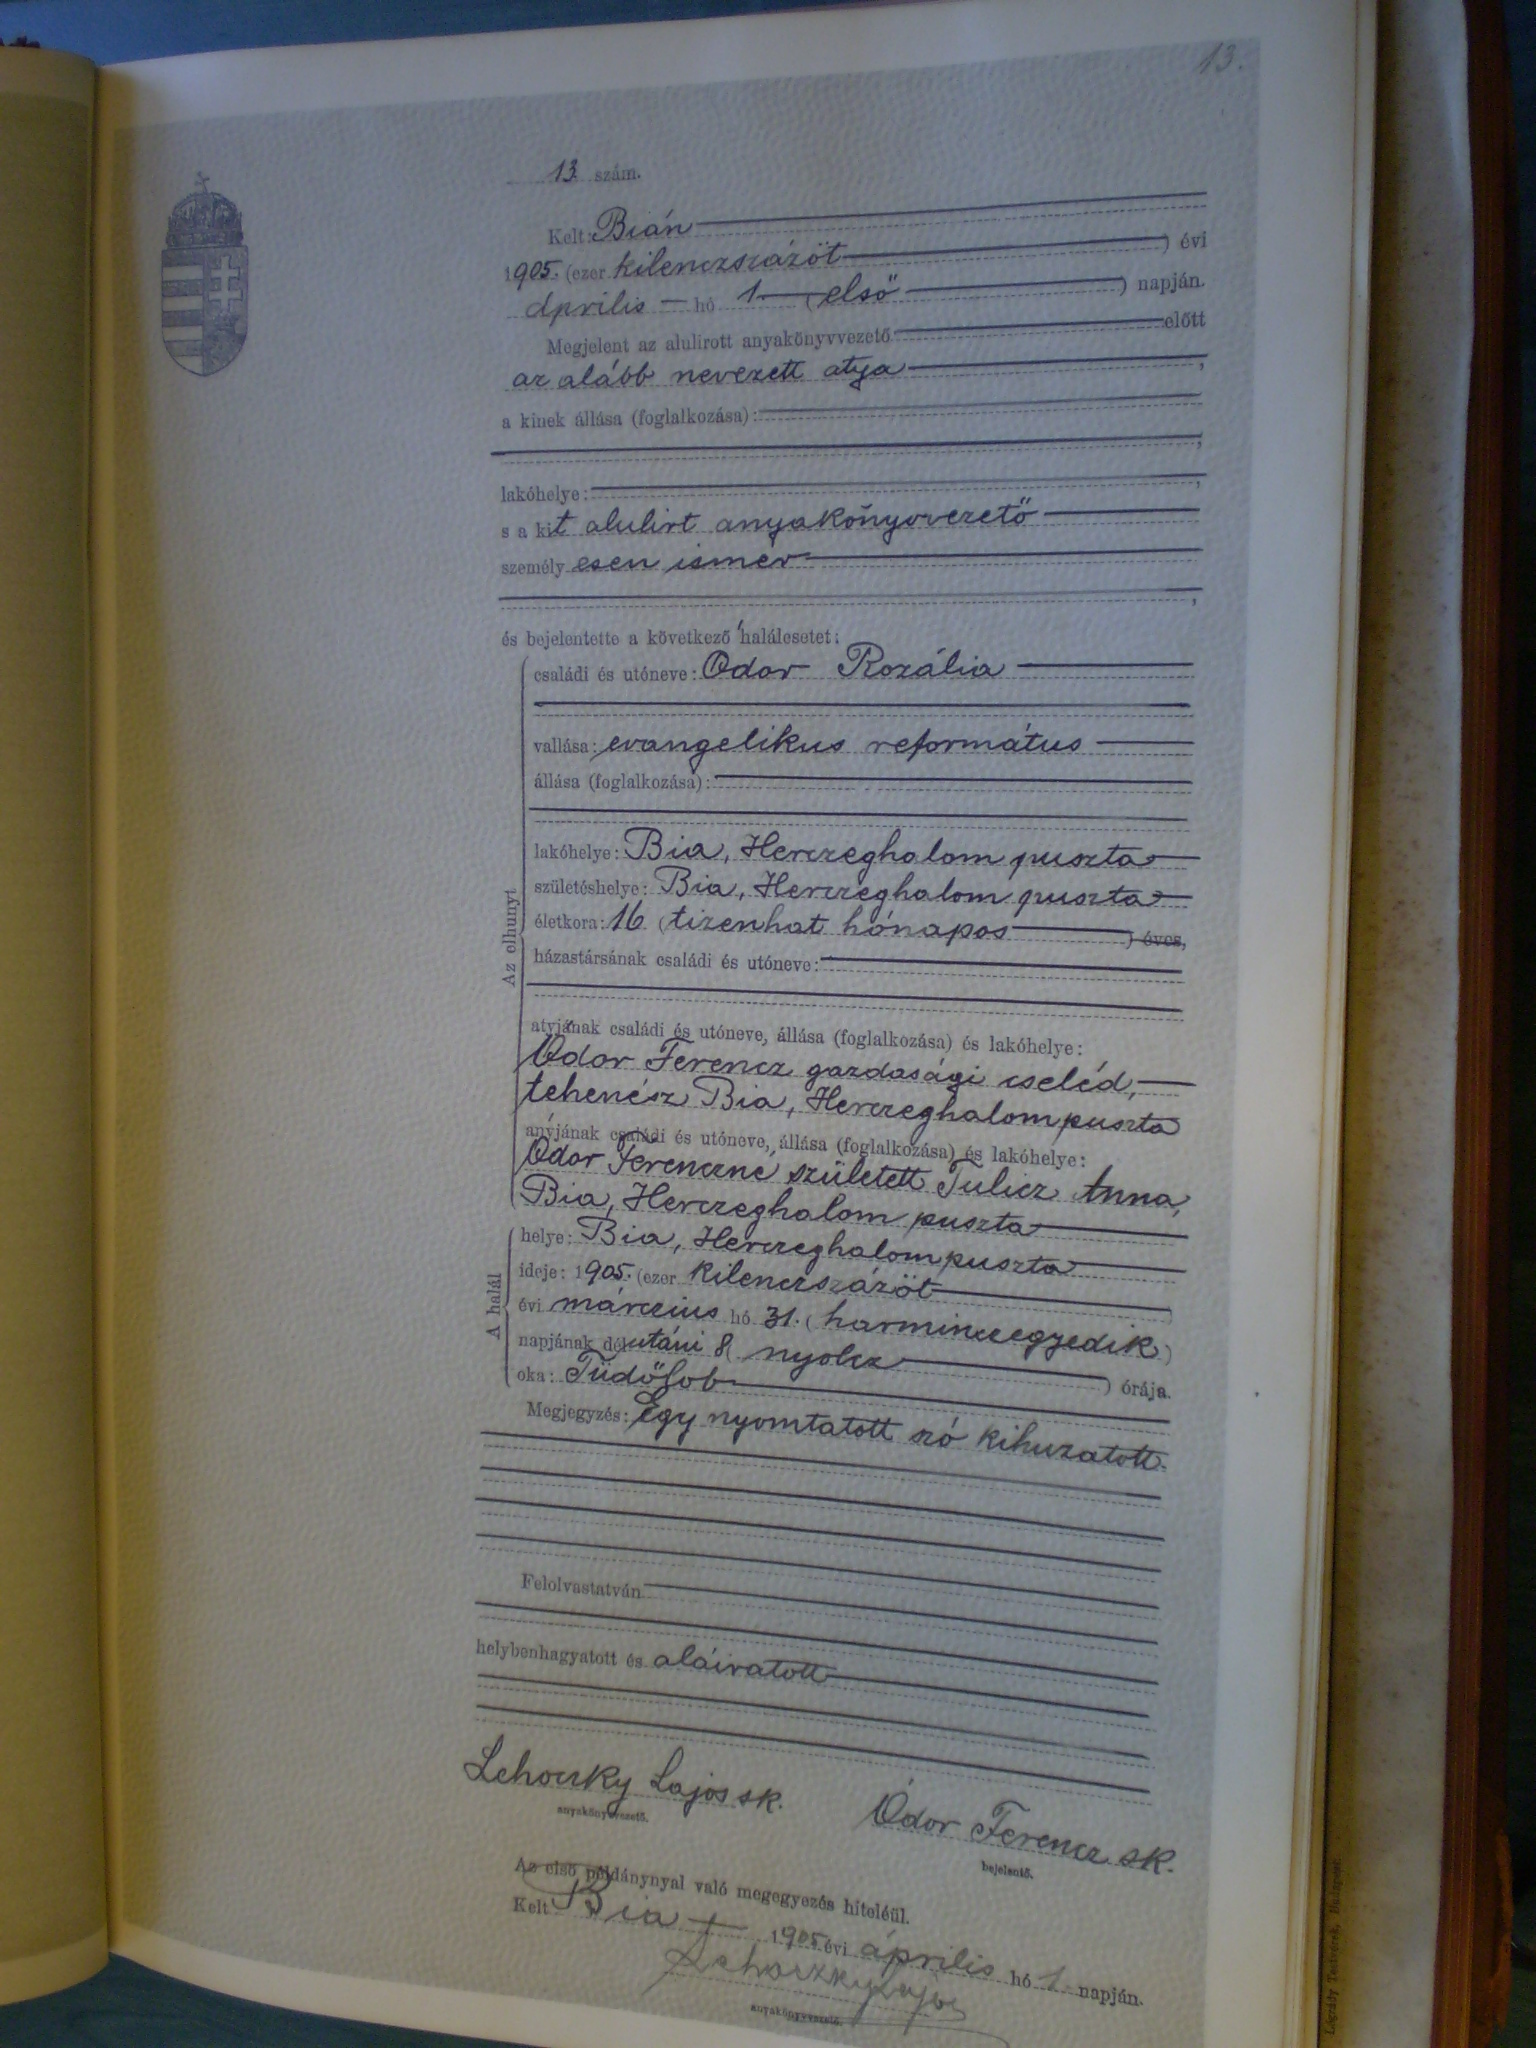 13.
13. szám.
Kelt: Bián
1905. (ezer kilenczszázöt ) évi
április hó 1 (első ) napján.
Megjelent az alulirott anyakönyvvezető előtt
az alább nevezett atya ,
a kinek állása (foglalkozása):
,
lakóhelye: ,
s a kit alulirt anyakönyvvezető
személyesen ismér
,
és bejelentette a következő halálesetet:
Az elhunyt
családi és utóneve: Odor Rozália
vallása: evangelikus református
állása (foglalkozása):
lakóhelye: Bia, Herczeghalom puszta
születéshelye: Bia, Herczeghalom puszta
életkora: 16 (tizenhat hónapos ) éves,
házastársának családi és utóneve:
atyjának családi és utóneve, állása (foglalkozása) és lakóhelye:
Odor Ferencz gazdasági cseléd,
tehenész Bia, Herczeghalompuszta
anyjának családi és utóneve, állása (foglalkozása) és lakóhelye:
Odor Ferenczné született Tulicz Anna,
Bia, Herczeghalom puszta
A halál
helye: Bia, Herczeghalompuszta
ideje: 1905. (ezer kilenczszázöt )
évi márczius hó 31. (harminczegyedik)
napjának délutáni 8 (nyolcz ) órája.
oka: Tüdőlob
Megjegyzés: Egy nyomtatott szó kihuzatott.
Felolvastatván
helybenhagyatott és aláiratott
Lehoczky Lajos sk.
anyakönyvvezető.
Ódor Ferencz sk.
bejelentő.
Az első példánynyal való megegyezés hiteléül.
Kelt Bia 1905 évi április hó 1 napján.
Lehoczky Lajos
anyakönyvvezető.
Légrády Testvérek, Budapest.